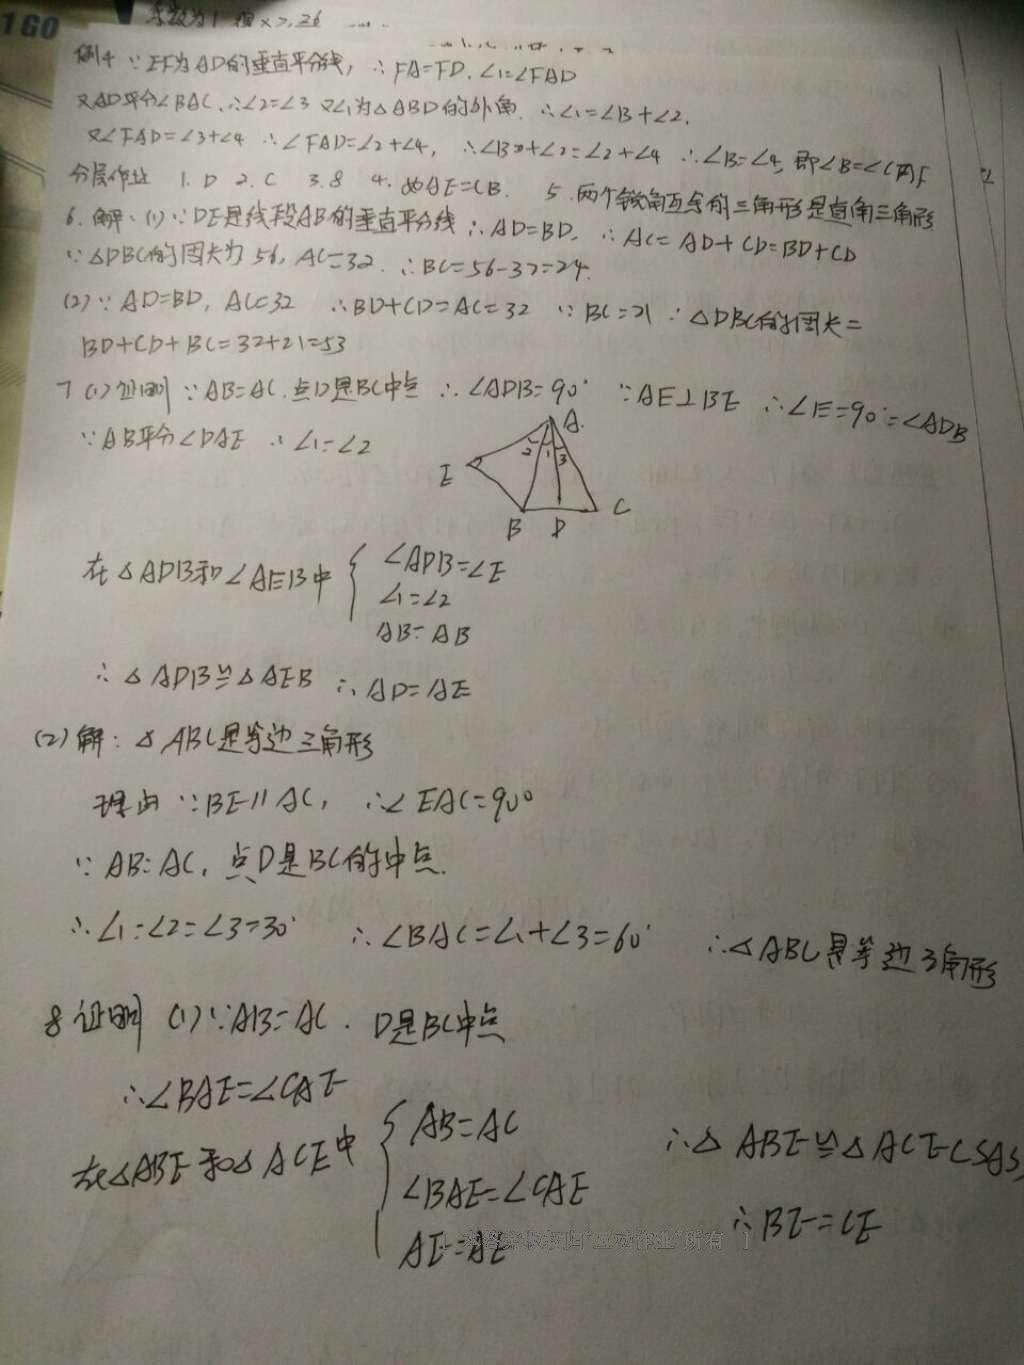 1GO
系数为1
例4 ∵EF为AD的垂直平分线, ∴FA=FD. ∠1=∠FAD
又AD平分∠BAC. ∴∠2=∠3 又∠1为△ABD的外角. ∴∠1=∠B+∠2.
又∠FAD=∠3+∠4 ∴∠FAD=∠2+∠4, ∴∠B+∠2=∠2+∠4 ∴∠B=∠4, 即∠B=∠CAF
分层作业 1. D 2. C 3. 8 4. 如AE=CB. 5. 两个锐角互余的三角形是直角三角形
6. 解: (1) ∵DE是线段AB的垂直平分线 ∴AD=BD, ∴AC=AD+CD=BD+CD
∵△DBC的周长为56, AC=32. ∴BC=56-32=24.
(2) ∵AD=BD, AC=32 ∴BD+CD=AC=32 ∵BC=21 ∴△DBC的周长=
BD+CD+BC=32+21=53
7 (1) 证明 ∵AB=AC. 点D是BC中点 ∴∠ADB=90° ∵AE⊥BE ∴∠E=90°=∠ADB
∵AB平分∠DAE ∴∠1=∠2
A.
2 1 3
E
B D C
在△ADB和∠AEB中 { ∠ADB=∠E
∠1=∠2
AB=AB
∴△ADB≌△AEB ∴AD=AE
(2) 解: △ABC是等边三角形
理由 ∵BE∥AC, ∴∠EAC=90°
∵AB=AC, 点D是BC的中点.
∴∠1=∠2=∠3=30° ∴∠BAC=∠1+∠3=60° ∴△ABC是等边三角形
8 证明 (1) ∵AB=AC. D是BC中点
∴∠BAE=∠CAE
在△ABE和△ACE中 { AB=AC
∠BAE=∠CAE
AE=AE
∴△ABE≌△ACE(SAS)
∴BE=CE